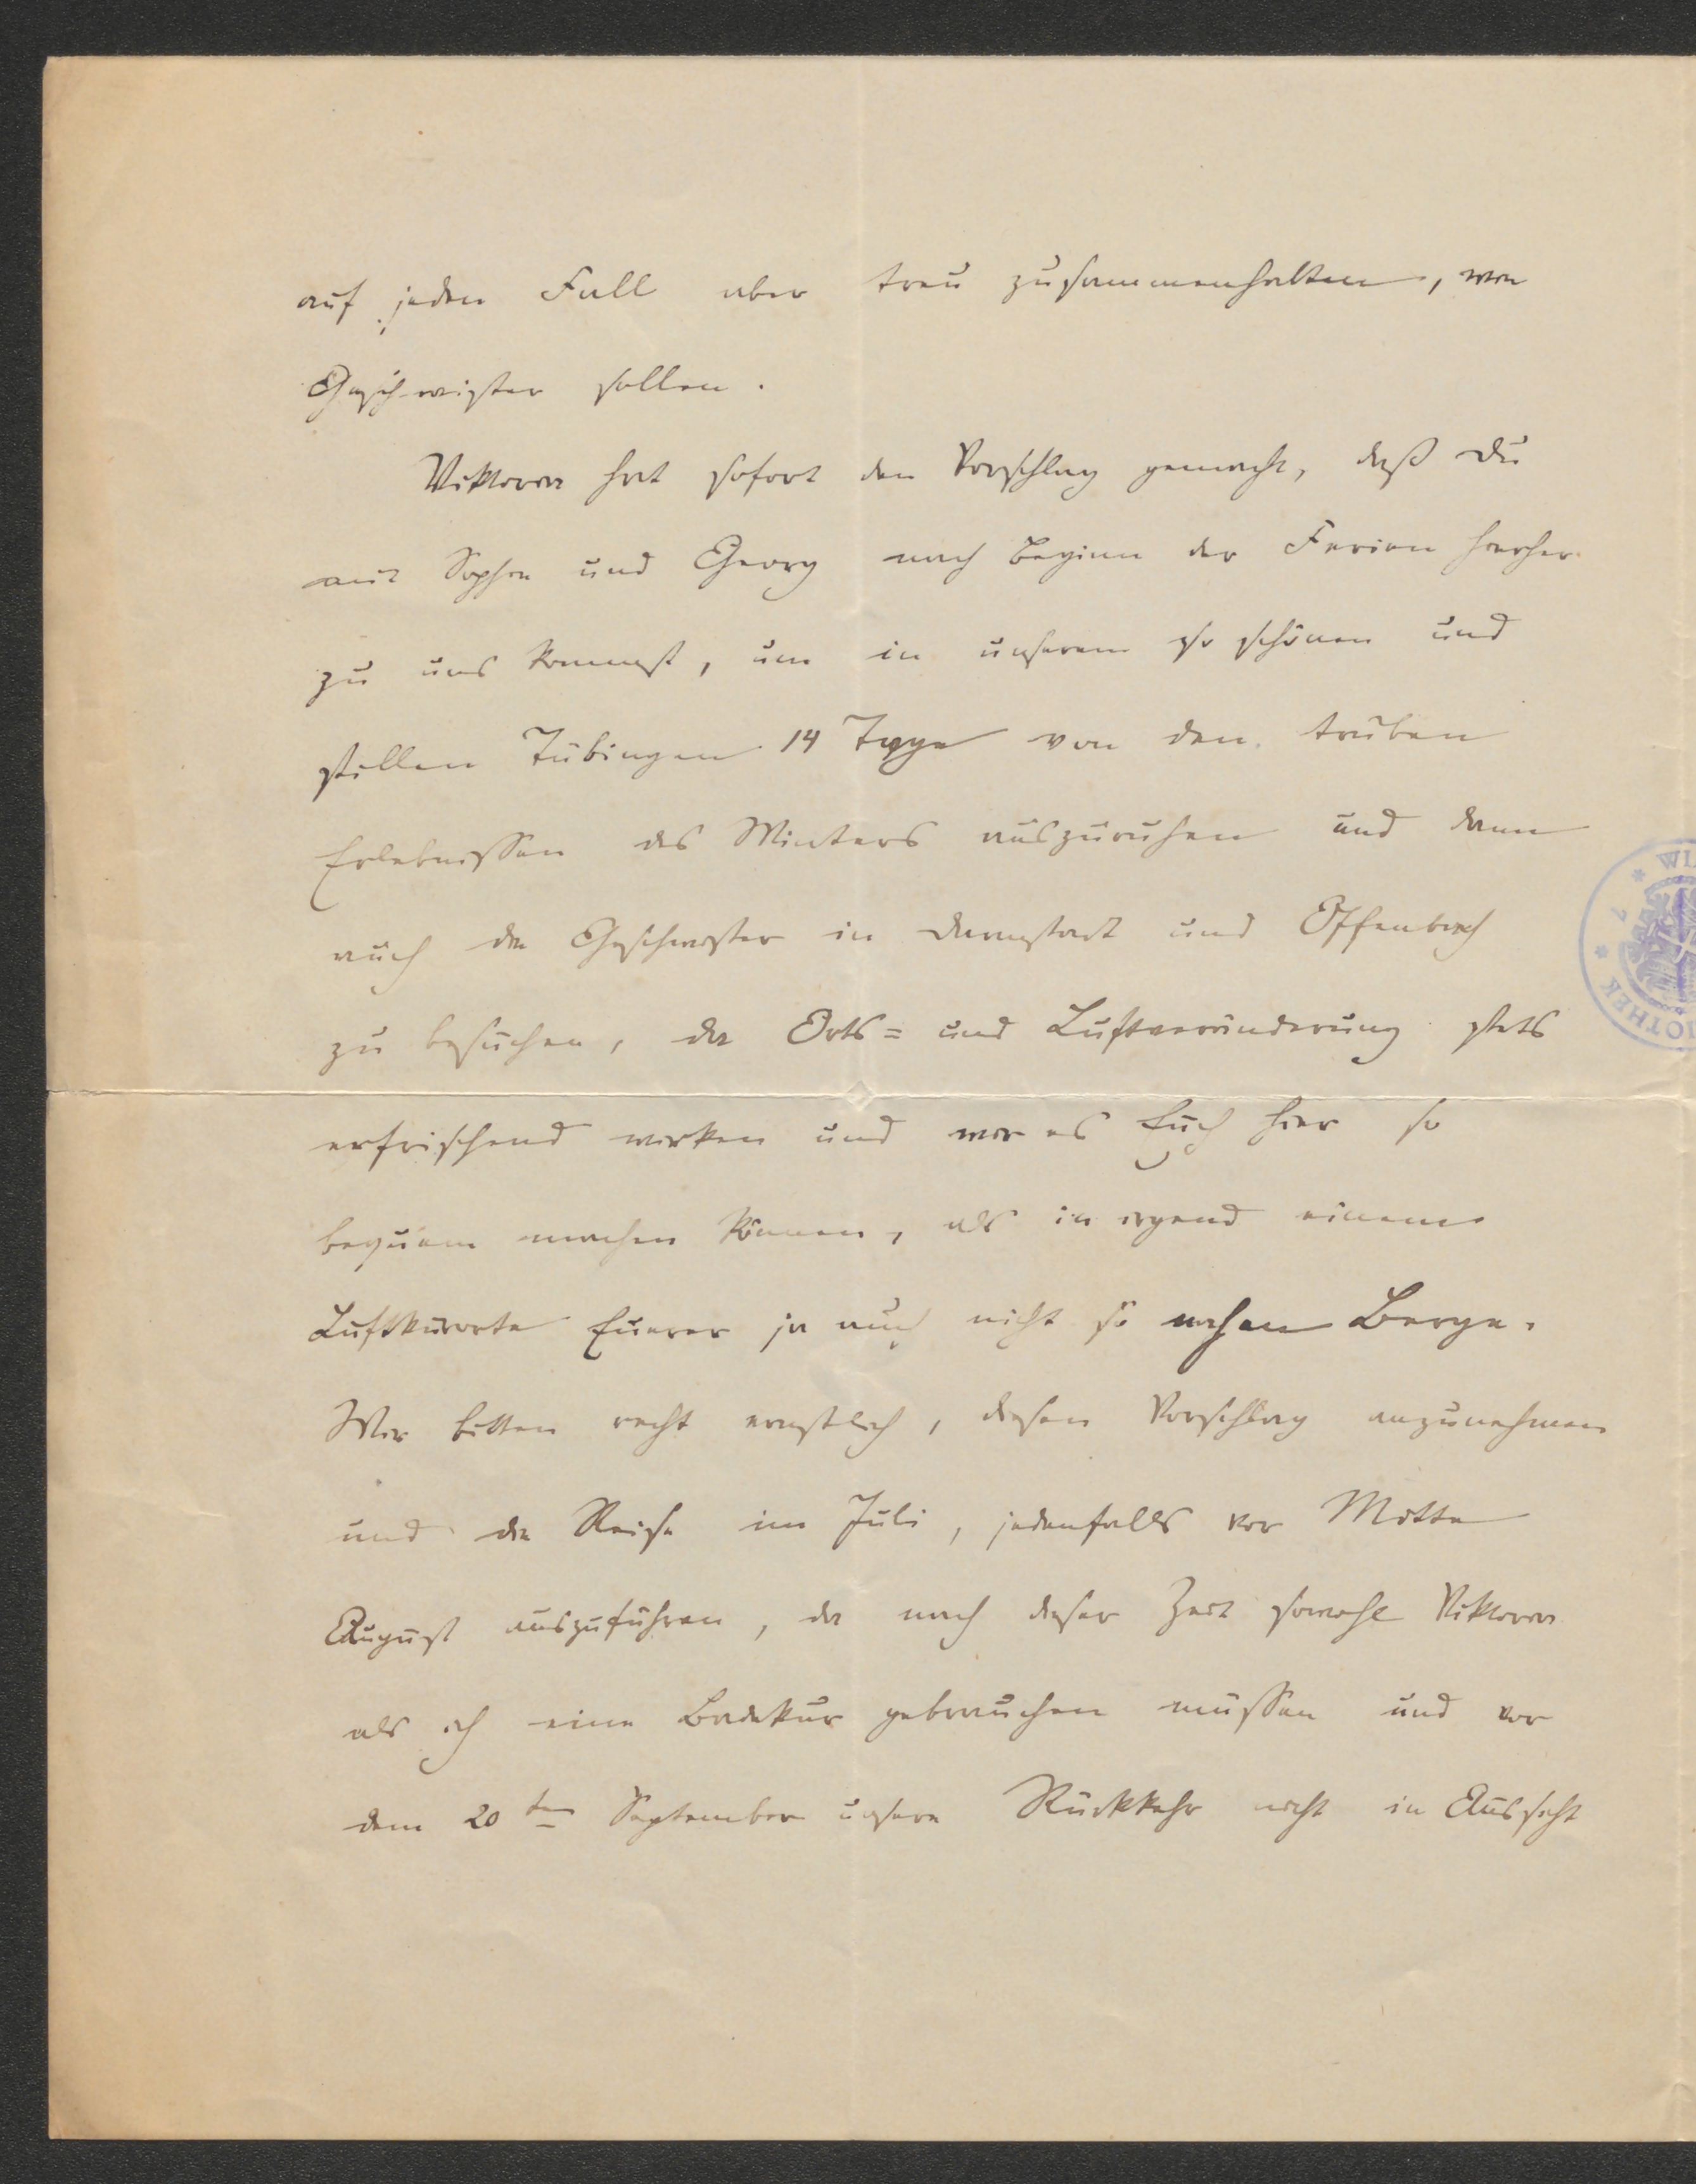 auf jeden Fall aber treu zusammenhalten, wie
Geschwister sollen.
Viktorin hat sofort den Vorschlag gemacht, daß Du
mit Sophie und Georg nach Beginn der Ferien hierher
zu uns kommst, um in unserem so schönen und
stillen Tübingen 14 Tage von den trüben
Erlebnissen des Winters auszuruhen und dann
auch die Geschwister in Darmstadt und Offenbach
zu besuchen, da Orts- und Luftveränderung stets
erfrischend wirken und wir es Euch hier so
bequem machen können, als in irgend einem
Luftkurorte Eurer ja auch nicht so nahen Berge.
Wir bitten recht ernstlich, diesen Vorschlag anzunehmen
und die Reise im Juli, jedenfalls vor Mitte
August auszuführen, da nach dieser Zeit sowohl
als ich eine Badekur gebrauchen müssen und vor
dem 20ten September unsere Rückkehr nicht in Aussicht